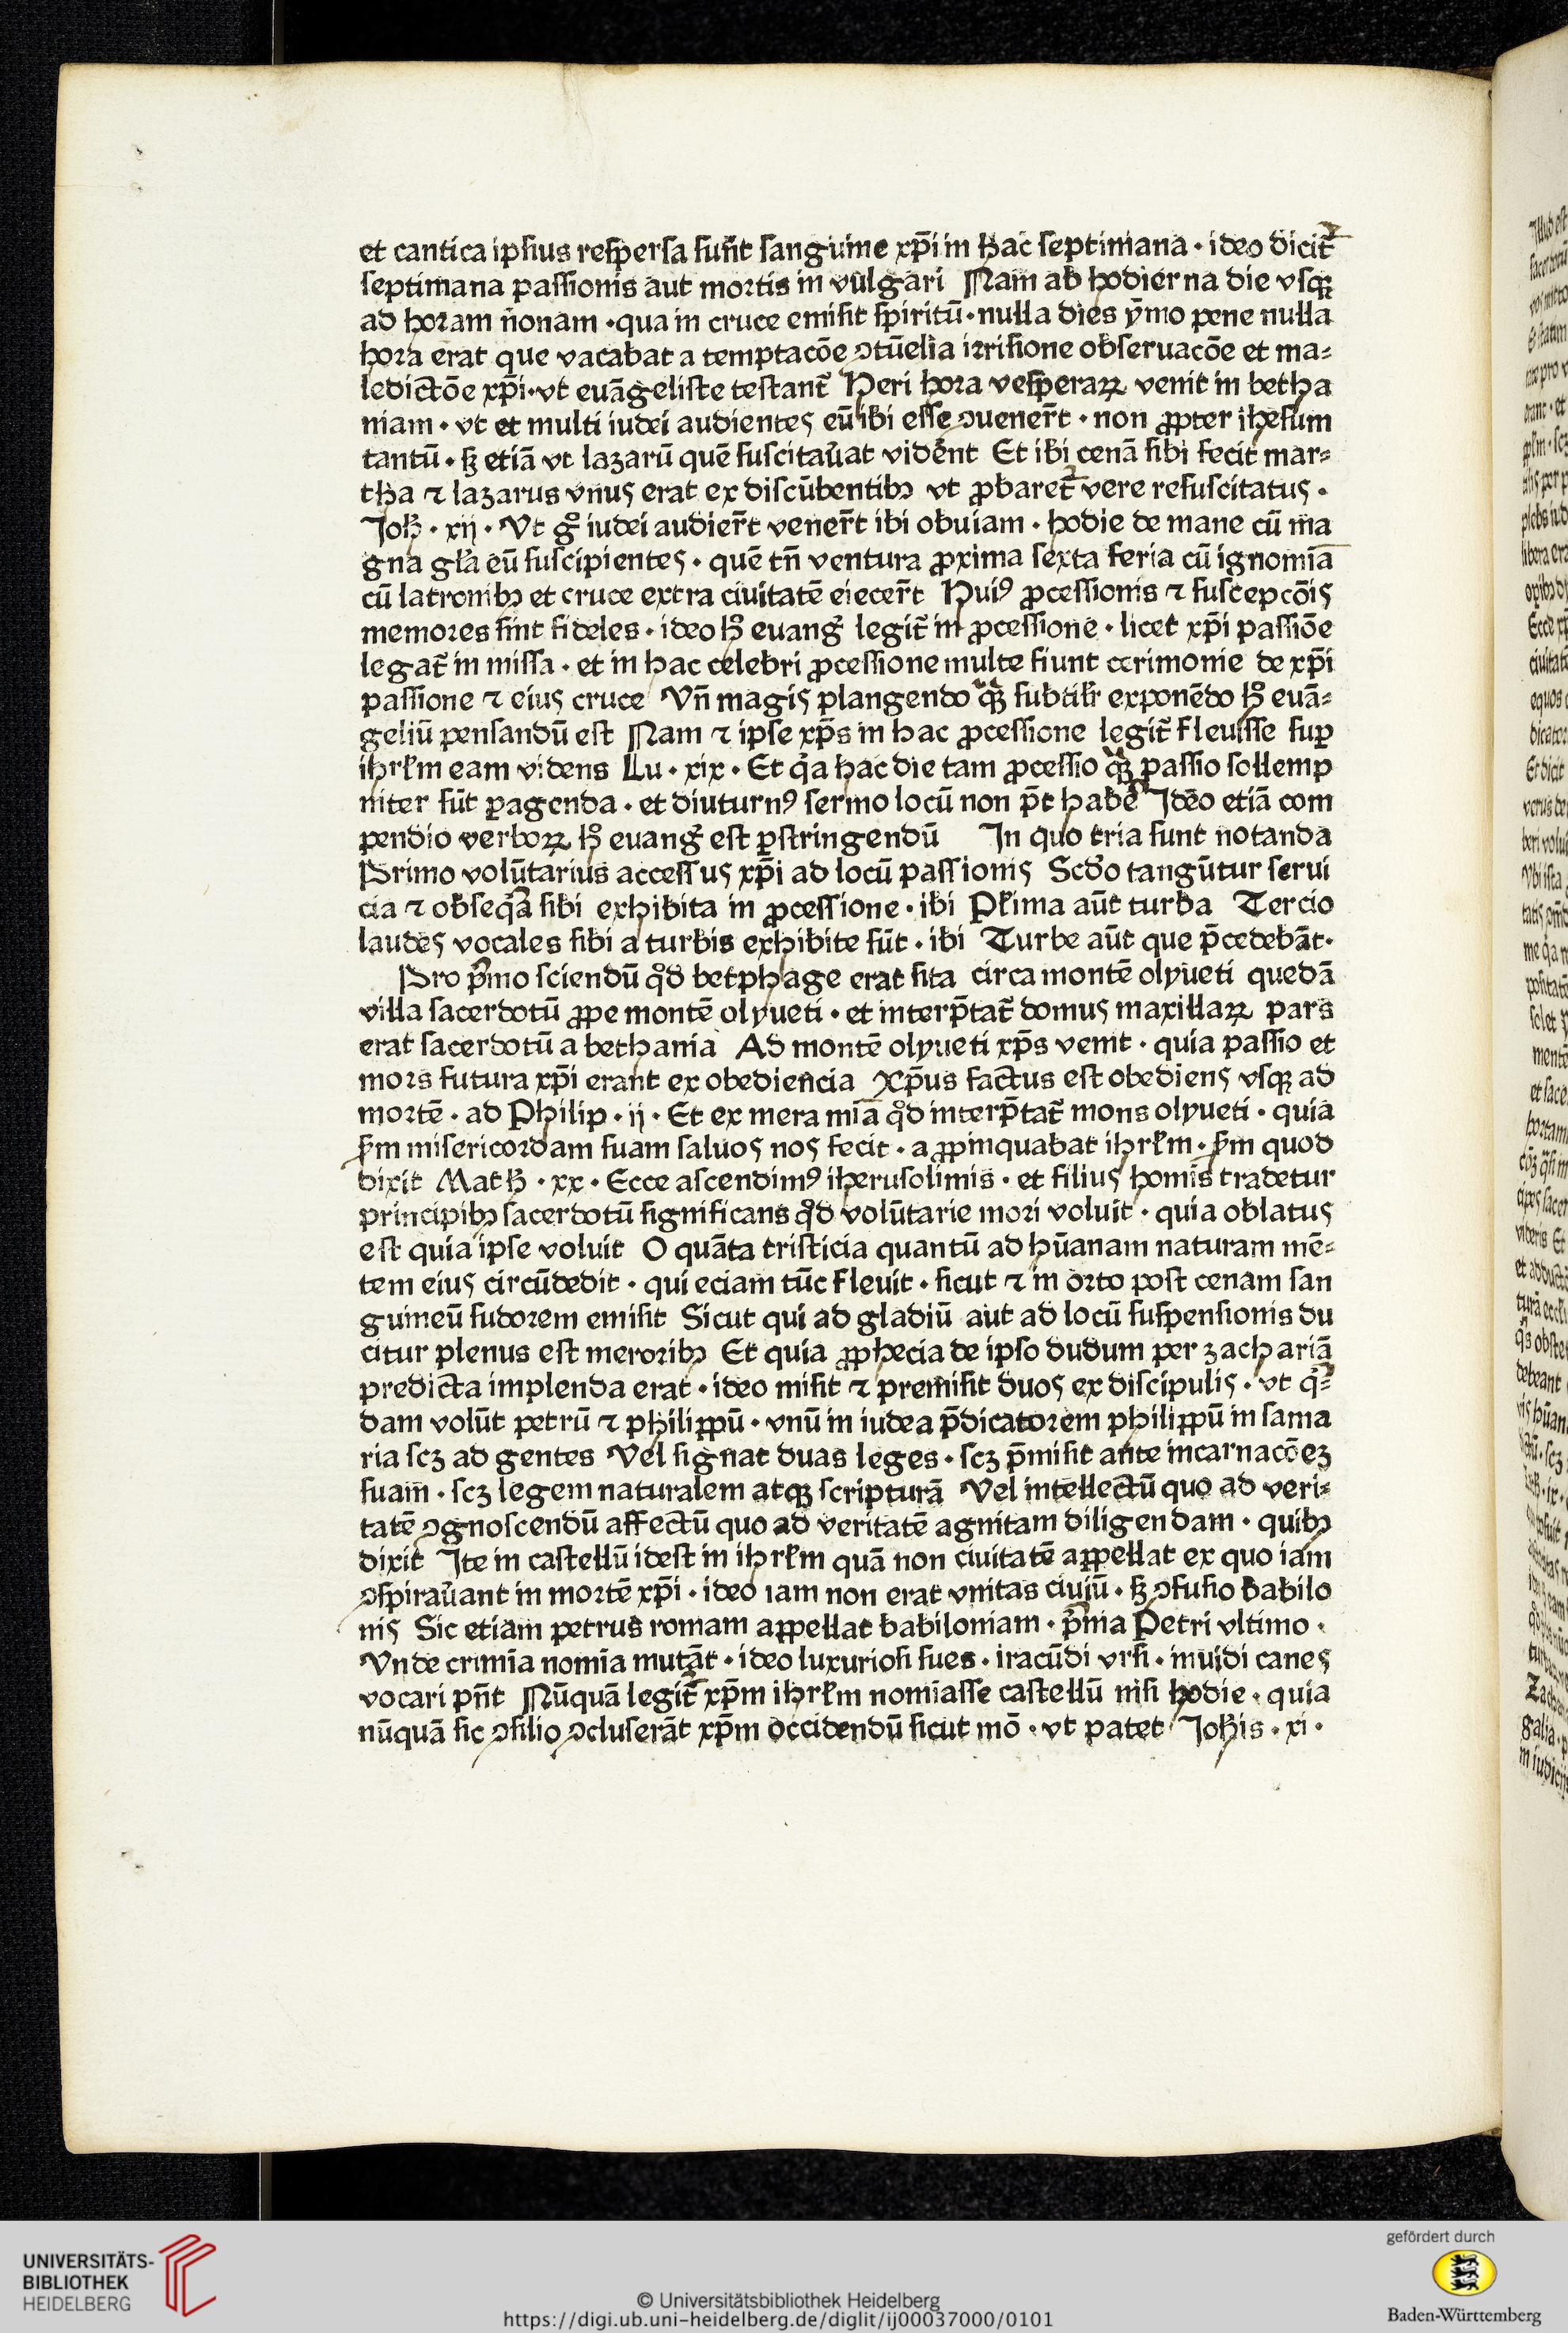 et cantica ipſius reſperſa ſun̄t ſanguine xp̄i in hac ſeptimana · ideo dicit᷑
ſeptimana paſſionis aut moꝛtis in vulgari Nam ab hodierna die vſqꝫ
ad hoꝛam nonam · qua in cruce emiſit ſpiritū · nulla dies ȳmo pene nulla
hoꝛa erat que vacabat a temptacōe ꝯtūelia irriſione obſeruacōe et ma⸗
ledictōe xp̄i · vt euāgeliſte teſtant᷑ Heri hoꝛa veſperaꝝ venit in betha
niam · vt et multi iudei audientes eū ibi eſſe ꝯuener̄t · non ꝓpter iheſum
tantū · ſꝫ etiā vt lazarū quē ſuſcitau̓at vident Et ibi cenā ſibi fecit mar⸗
tha ⁊ lazarus vnus erat ex diſcūbentibꝫ vt ꝓbaret᷑ vere reſuſcitatus ·
Joh̄ · xij · Vt gͦ iudei audier̄t vener̄t ibi obuiam · hodie de mane cū ma
gna gl̄a eū ſuſcipientes · quē tn̄ ventura ꝓxima ſexta feria cū ignomīa
cū latronibꝫ et cruce extra ciuitatē eiecer̄t Huiꝰ ꝓceſſionis ⁊ ſuſcepcōis
memoꝛes ſint fideles · ideo hͦ euang̓ legit᷑ in ꝓceſſione · licet xp̄i paſſiōe
legat᷑ in miſſa · et in hac celebri ꝓceſſione multe fiunt cerimonie de xp̄i
paſſione ⁊ eius cruce Vn̄ magis plangendo qꝫ ſubtilr̄ exponēdo hͦ euā⸗
geliū penſandū eſt Nam ⁊ ipſe xp̄s in hac ꝓceſſione legit᷑ fleuiſſe ſuꝑ
ihrl̄m eam videns Lu · xix · Et qͣa hac die tam ꝓceſſio qꝫ paſſio ſollemp
niter ſūt ꝑagenda · et diuturnꝰ ſermo locū non p̄t habe᷑ Ideo etiā com
pendio verboꝝ hͦ euang̓ eſt ꝑſtringendū In quo tria ſunt notanda
Primo volūtarius acceſſus xp̄i ad locū paſſionis Scd̓o tangūtur ſerui
cia ⁊ obſeqͥa ſibi exhibita in ꝓceſſione · ibi Pl̄ima aūt turba Tercio
laudes vocales ſibi a turbis exhibite ſūt · ibi Turbe aūt que p̄cedebāt ·
Pro pͥmo ſciendū qͦd betphage erat ſita circa montē olyueti quedā
villa ſacerdotū ꝓpe montē olyueti · et interp̄tat᷑ domus maxillaꝝ pars
erat ſacerdotū a bethania Ad montē olyueti xp̄s venit · quia paſſio et
moꝛs futura xp̄i erant ex obediencia Xp̄us factus eſt obediens vſqꝫ ad
moꝛtē · ad Philip · ij · Et ex mera mīa qͦd interp̄tat᷑ mons olyueti · quia
ẜm miſericoꝛdam ſuam ſaluos nos fecit · aꝓpinquabat ihrl̄m · ẜm quod
dixit Math̄ · xx · Ecce aſcendimꝰ iheruſolimis · et filius homīs tradetur
principibꝫ ſacerdotū ſignificans qͦd volūtarie moꝛi voluit · quia oblatus
eſt quia ipſe voluit O quāta triſticia quantū ad hūanam naturam mē⸗
tem eius circūdedit · qui eciam tūc fleuit · ſicut ⁊ in oꝛto poſt cenam ſan
guineū ſudoꝛem emiſit Sicut qui ad gladiū aut ad locū ſuſpenſionis du
citur plenus eſt meroꝛibꝫ Et quia ꝓphecia de ipſo dudum per zachariā
predicta implenda erat · ideo miſit ⁊ premiſit duos ex diſcipulis · vt qͥ⸗
dam volūt petrū ⁊ philippū · vnū in iudea p̄dicatoꝛem philippū in ſama
ria ſcꝫ ad gentes Vel ſignat duas leges · ſcꝫ p̄miſit ante incarnacōeꝫ
ſuam · ſcꝫ legem naturalem atqꝫ ſcripturā Vel intellectū quo ad veri⸗
tatē ꝯgnoſcendū affectū quo ad veritatē agnitam diligendam · quibꝫ
dixit Ite in caſtellū ideſt in ihrl̄m quā non ciuitatē appellat ex quo iam
ꝯſpirau̓ant in moꝛtē xp̄i · ideo iam non erat vnitas ciuiū · ſꝫ ꝯfuſio babilo
nis Sic etiam petrus romam appellat babiloniam · pͥma Petri vltimo ·
Vnde crimīa nomīa mutāt · ideo luxurioſi ſues · iracūdi vrſi · inuidi canes
vocari pn̄t Nūquā legit᷑ xp̄m ihrl̄m nomīaſſe caſtellū niſi hodie · quia
nūquā ſic ꝯſilio ꝯcluſerāt xp̄m occidendū ſicut mō · vt patet Joh̄is · xi ·
UNIVERSITÄTS-
BIBLIOTHEK
HEIDELBERG
© Universitätsbibliothek Heidelberg
https://digi.ub.uni-heidelberg.de/diglit/ij00037000/0101
gefördert durch
Baden-Württemberg